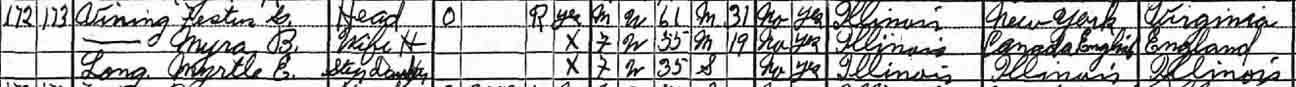 172 173 Vining Festus G. Head O R yes M W 61 M 31 No yes Illinois New York Virginia
—— Myra B. Wife H X F W 55 M 19 No yes Illinois Canada English England
Long Myrtle E. Step Daughter X F W 35 S No yes Illinois Illinois Illinois